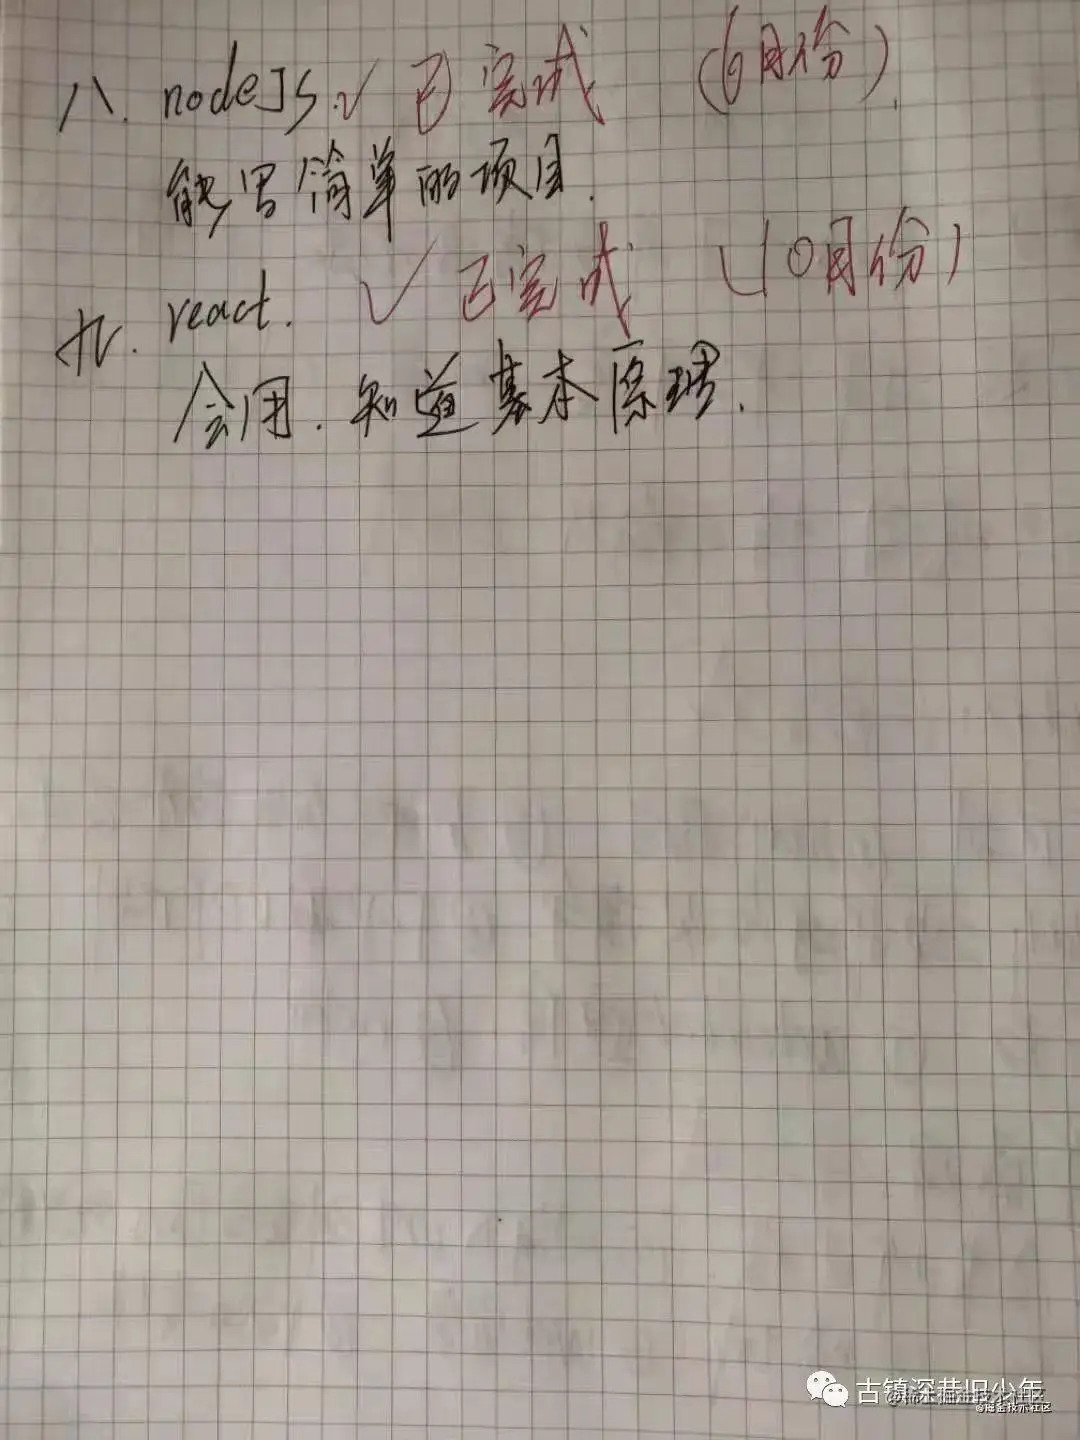 八. nodeJS. ✓ 已完成 (6月份).
能写简单的项目.
九. react. ✓ 已完成 (10月份)
会用. 知道基本原理.
古镇深巷旧少年
@稀土掘金技术社区
@掘金技术社区